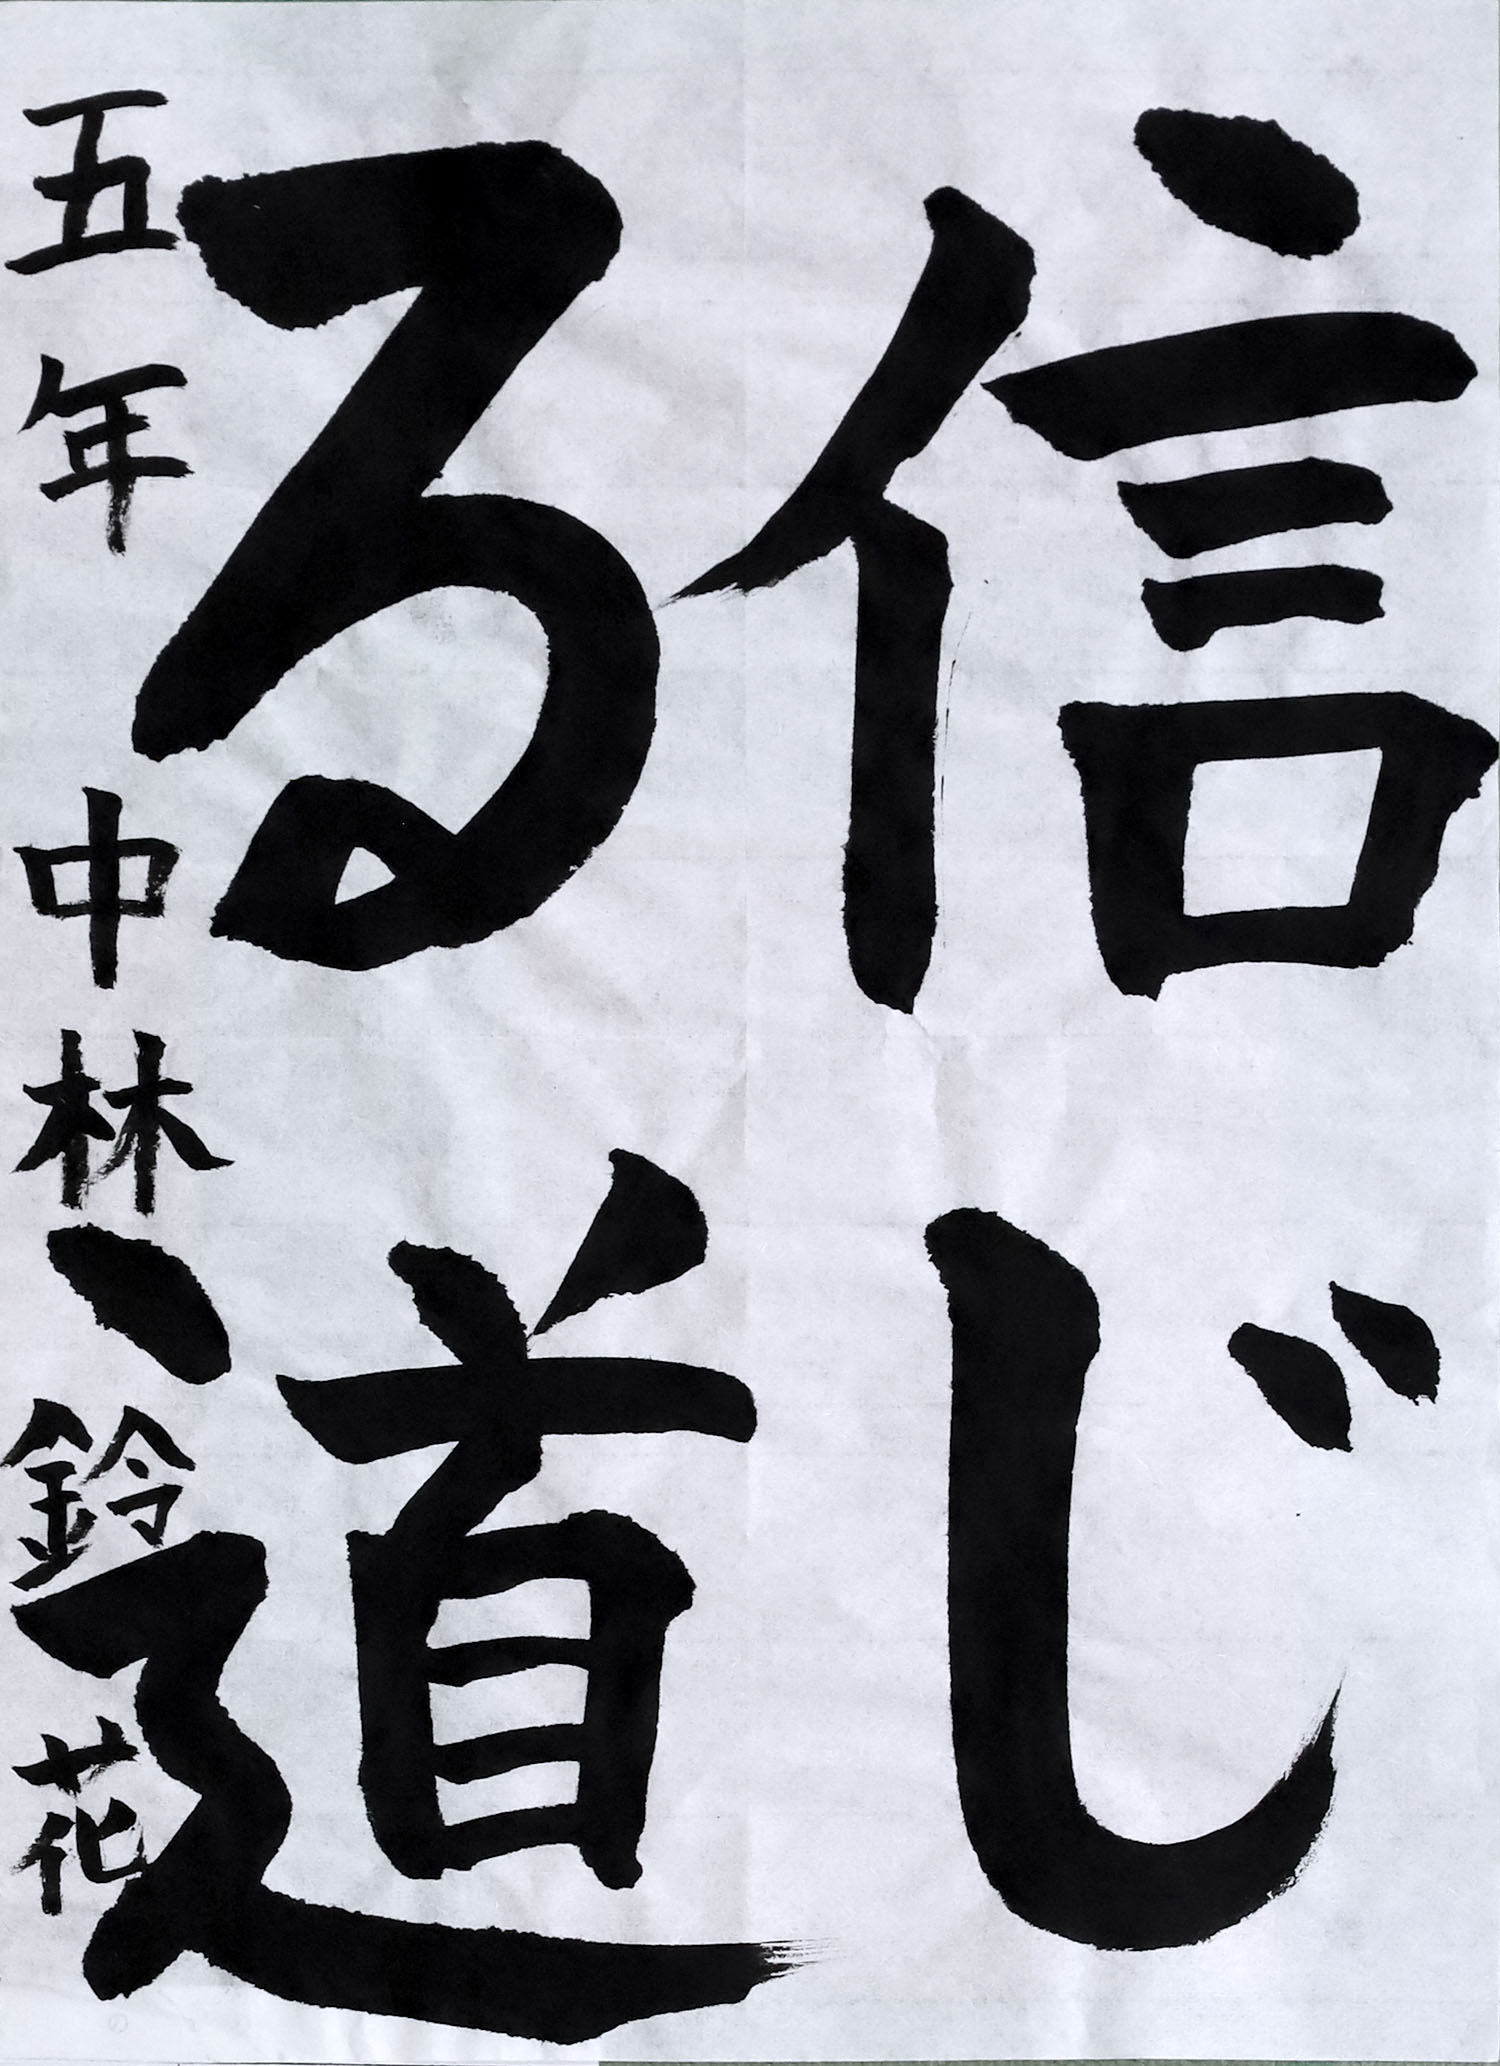 信じ
る道
五年 中林 鈴花